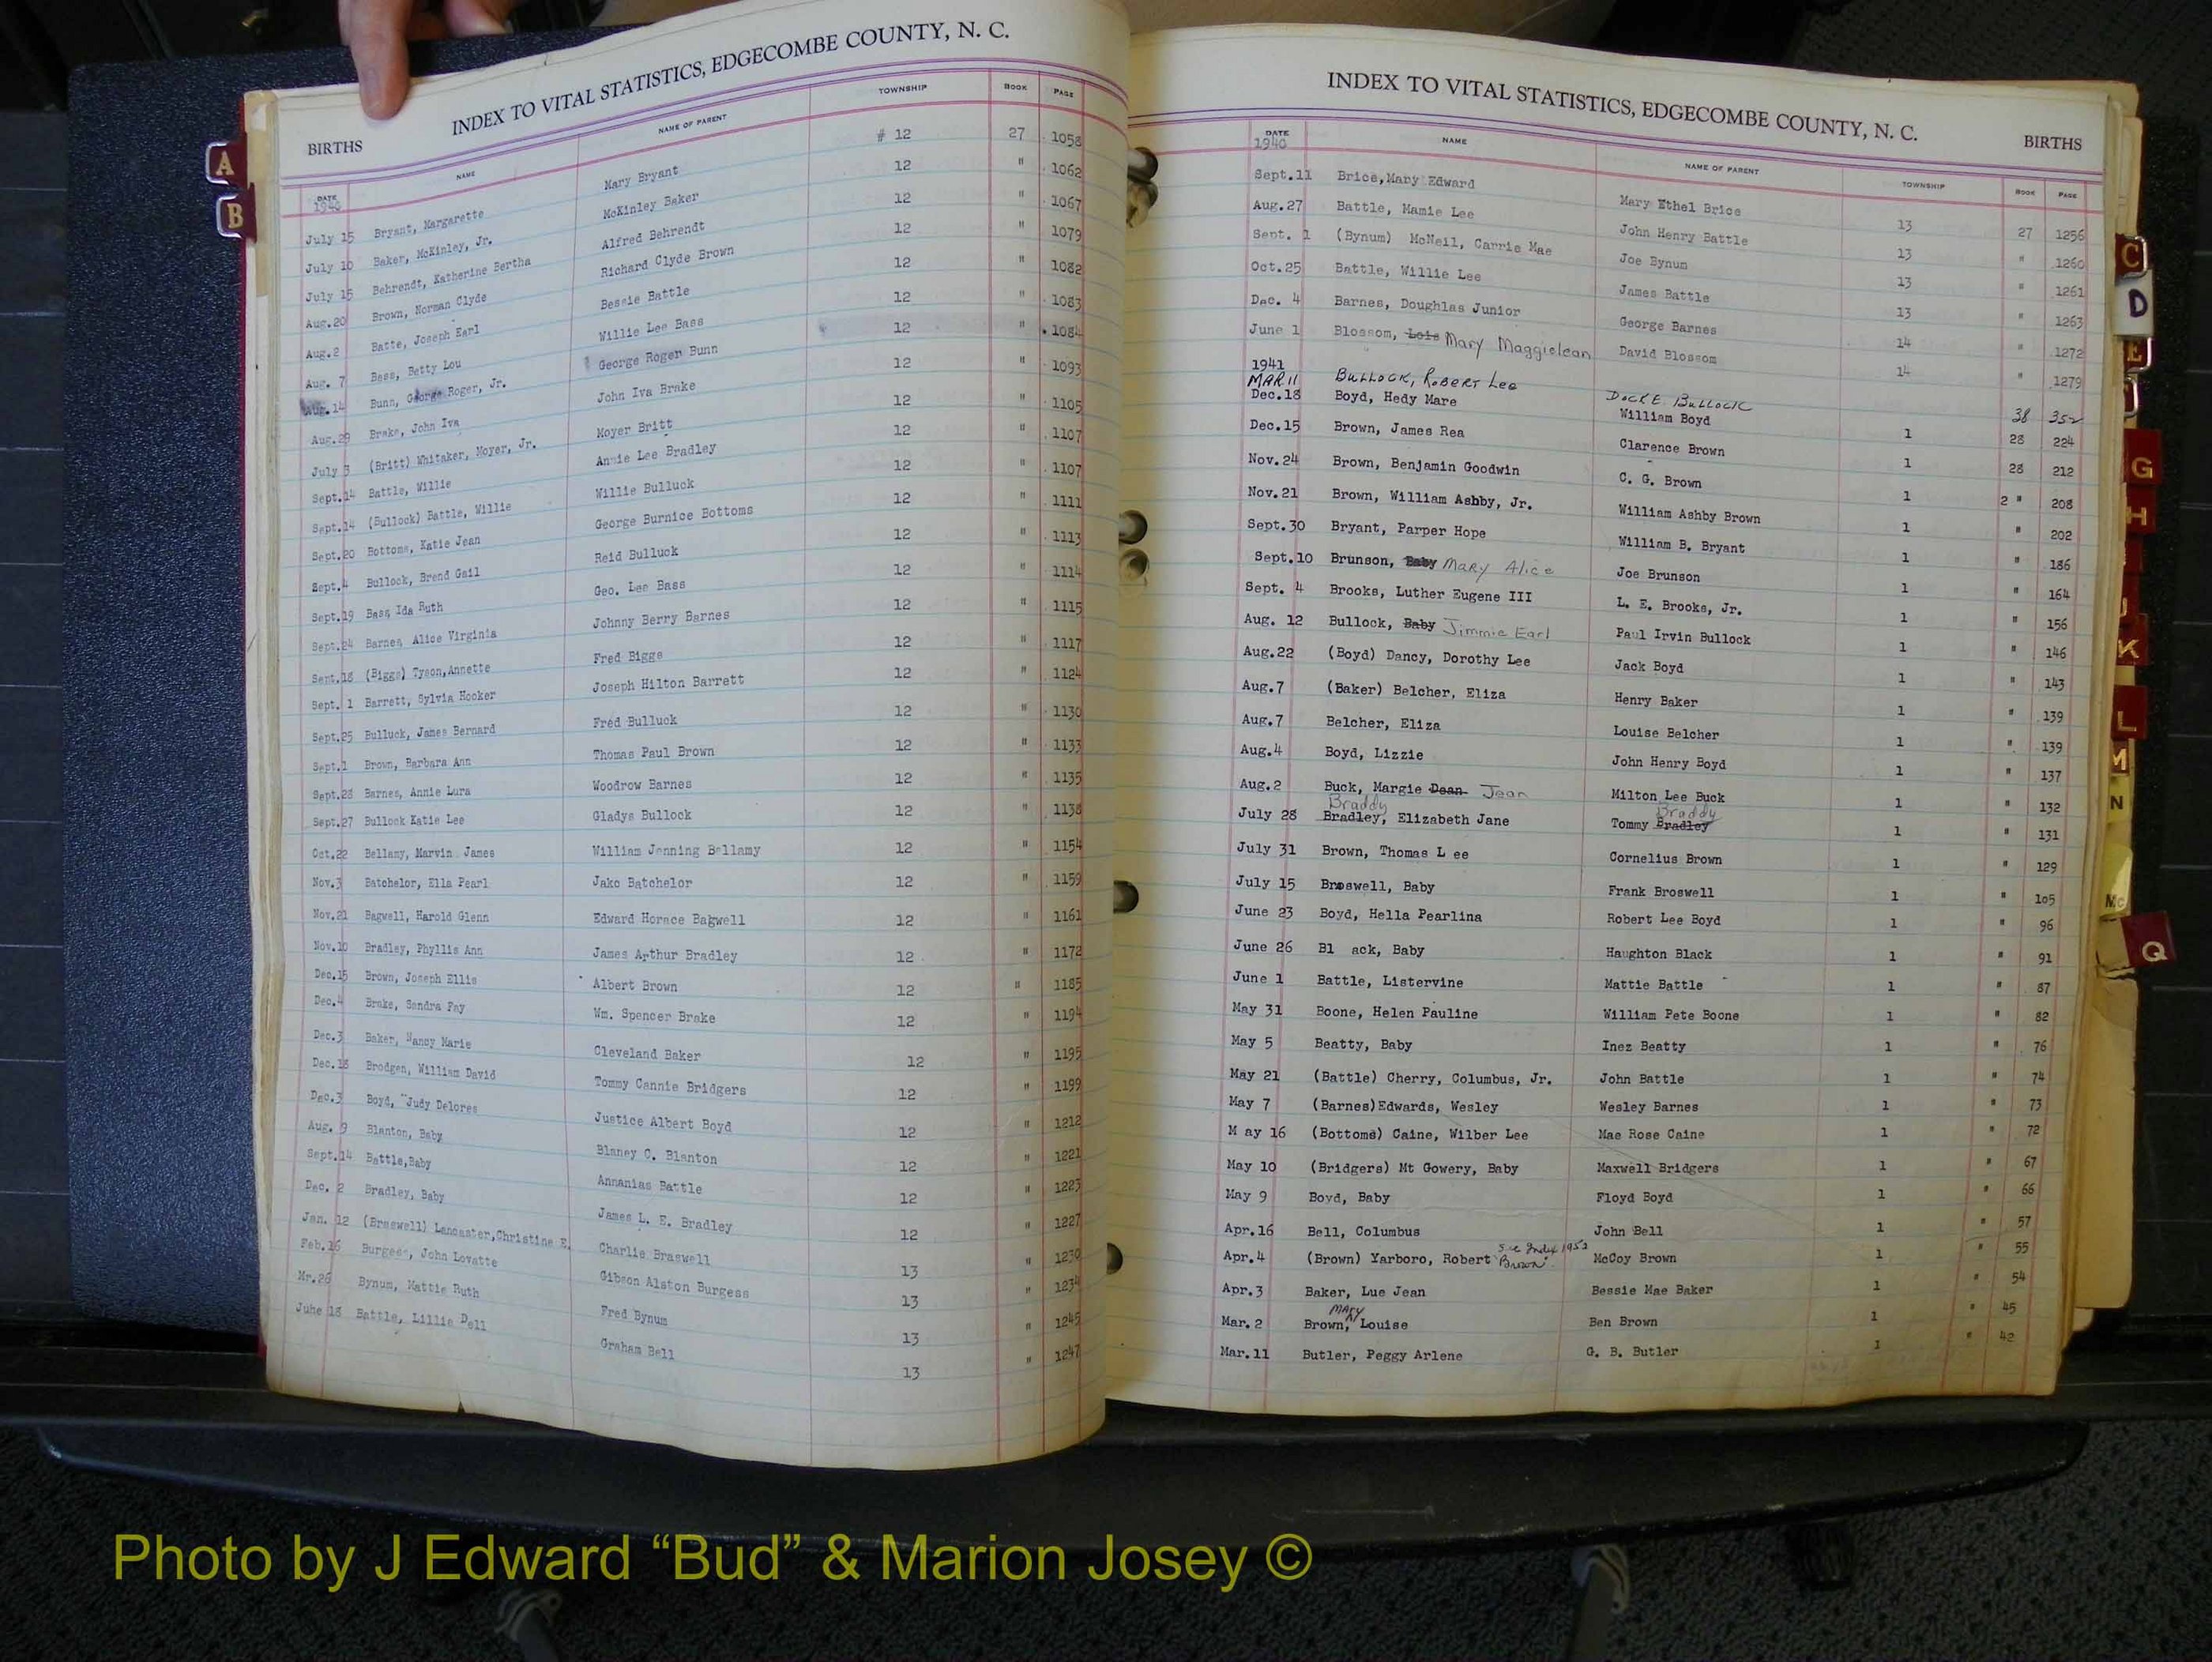 INDEX TO VITAL STATISTICS, EDGECOMBE COUNTY, N. C.
BIRTHS
DATE NAME NAME OF PARENT TOWNSHIP BOOK PAGE
1940
July 15 Bryant, Margarette Mary Bryant # 12 27 1058
July 10 Baker, McKinley, Jr. McKinley Baker 12 " 1062
July 15 Behrendt, Katherine Bertha Alfred Behrendt 12 " 1067
Aug.20 Brown, Norman Clyde Richard Clyde Brown 12 " 1079
Aug.2 Batte, Joseph Earl Bessie Battle 12 " 1082
Aug. 7 Bass, Betty Lou Willie Lee Bass 12 " 1083
Aug.14 Bunn, George Roger, Jr. George Roger Bunn 12 " 1084
Aug.29 Brake, John Iva John Iva Brake 12 " 1093
July 3 (Britt) Whitaker, Moyer, Jr. Moyer Britt 12 " 1105
Sept.14 Battle, Willie Annie Lee Bradley 12 " 1107
Sept.14 (Bullock) Battle, Willie Willie Bulluck 12 " 1107
Sept.20 Bottoms, Katie Jean George Burnice Bottoms 12 " 1111
Sept.4 Bullock, Brend Gail Reid Bulluck 12 " 1113
Sept.19 Bass Ida Ruth Geo. Lee Bass 12 " 1114
Sept.24 Barnes, Alice Virginia Johnny Berry Barnes 12 " 1115
Sept.18 (Biggs) Tyson,Annette Fred Biggs 12 " 1117
Sept. 1 Barrett, Sylvia Hooker Joseph Hilton Barrett 12 " 1124
Sept.25 Bulluck, James Bernard Fred Bulluck 12 " 1130
Sept.1 Brown, Barbara Ann Thomas Paul Brown 12 " 1133
Sept.28 Barnes, Annie Lura Woodrow Barnes 12 " 1135
Sept.27 Bullock Katie Lee Gladys Bullock 12 " 1138
Oct.22 Bellamy, Marvin James William Jenning Bellamy 12 " 1154
Nov.3 Batchelor, Ella Pearl Jake Batchelor 12 " 1159
Nov.21 Bagwell, Harold Glenn Edward Horace Bagwell 12 " 1161
Nov.10 Bradley, Phyllis Ann James Arthur Bradley 12 " 1172
Dec.15 Brown, Joseph Ellis Albert Brown 12 " 1185
Dec.4 Brake, Sandra Fay Wm. Spencer Brake 12 " 1194
Dec.3 Baker, Nancy Marie Cleveland Baker 12 " 1195
Dec.18 Brodgen, William David Tommy Cannie Bridgers 12 " 1199
Dec.3 Boyd, "Judy Delores Justice Albert Boyd 12 " 1212
Aug. 9 Blanton, Baby Blaney C. Blanton 12 " 1221
Sept.14 Battle,Baby Annanias Battle 12 " 1223
Dec. 2 Bradley, Baby James L. E. Bradley 12 " 1227
Jan. 12 (Braswell) Lancaster,Christine E. Charlie Braswell 13 " 1230
Feb.16 Burgess, John Lovatte Gibson Alston Burgess 13 " 1234
Mr.26 Bynum, Mattie Ruth Fred Bynum 13 " 1245
June 18 Battle, Lillie Dell Graham Bell 13 " 1247
INDEX TO VITAL STATISTICS, EDGECOMBE COUNTY, N. C.
BIRTHS
DATE NAME NAME OF PARENT TOWNSHIP BOOK PAGE
1940
Sept.11 Brice,Mary Edward Mary Ethel Brice 13 27 1256
Aug.27 Battle, Mamie Lee John Henry Battle 13 " 1260
Sept. 1 (Bynum) McNeil, Carrie Mae Joe Bynum 13 " 1261
Oct.25 Battle, Willie Lee James Battle 13 " 1263
Dec. 4 Barnes, Doughlas Junior George Barnes 14 " 1272
June 1 Blossom, Lois Mary Maggielean David Blossom 14 " 1279
1941
MAR 11 BULLOCK, ROBERT Lee DOCK E. BULLOCK 38 352
Dec.18 Boyd, Hedy Mare William Boyd 1 28 224
Dec.15 Brown, James Rea Clarence Brown 1 28 212
Nov.24 Brown, Benjamin Goodwin C. G. Brown 1 2 " 208
Nov.21 Brown, William Ashby, Jr. William Ashby Brown 1 " 202
Sept.30 Bryant, Parper Hope William B. Bryant 1 " 186
Sept.10 Brunson, Baby Mary Alice Joe Brunson 1 " 164
Sept. 4 Brooks, Luther Eugene III L. E. Brooks, Jr. 1 " 156
Aug. 12 Bullock, Baby Jimmie Earl Paul Irvin Bullock 1 " 146
Aug.22 (Boyd) Dancy, Dorothy Lee Jack Boyd 1 " 143
Aug.7 (Baker) Belcher, Eliza Henry Baker 1 " 139
Aug.7 Belcher, Eliza Louise Belcher 1 " 139
Aug.4 Boyd, Lizzie John Henry Boyd 1 " 137
Aug.2 Buck, Margie Dean Jean Milton Lee Buck 1 " 132
Braddy Braddy
July 28 Bradley, Elizabeth Jane Tommy Bradley 1 " 131
July 31 Brown, Thomas L ee Cornelius Brown 1 " 129
July 15 Broswell, Baby Frank Broswell 1 " 105
June 23 Boyd, Hella Pearlina Robert Lee Boyd 1 " 96
June 26 Bl ack, Baby Haughton Black 1 " 91
June 1 Battle, Listervine Mattie Battle 1 " 87
May 31 Boone, Helen Pauline William Pete Boone 1 " 82
May 5 Beatty, Baby Inez Beatty 1 " 76
May 21 (Battle) Cherry, Columbus, Jr. John Battle 1 " 74
May 7 (Barnes)Edwards, Wesley Wesley Barnes 1 " 73
M ay 16 (Bottoms) Caine, Wilber Lee Mae Rose Caine 1 " 72
May 10 (Bridgers) Mt Gowery, Baby Maxwell Bridgers 1 " 67
May 9 Boyd, Baby Floyd Boyd 1 " 66
Apr.16 Bell, Columbus John Bell 1 " 57
Apr.4 (Brown) Yarboro, Robert Brown see Index 1952 McCoy Brown 1 " 55
Apr.3 Baker, Lue Jean Bessie Mae Baker 1 " 54
Mar.2 Brown, Mary Louise Ben Brown 1 " 45
Mar.11 Butler, Peggy Arlene G. B. Butler 1 " 42
A
B
C
D
E
G
H
J
K
L
M
N
Mc
Q
Photo by J Edward “Bud” & Marion Josey ©